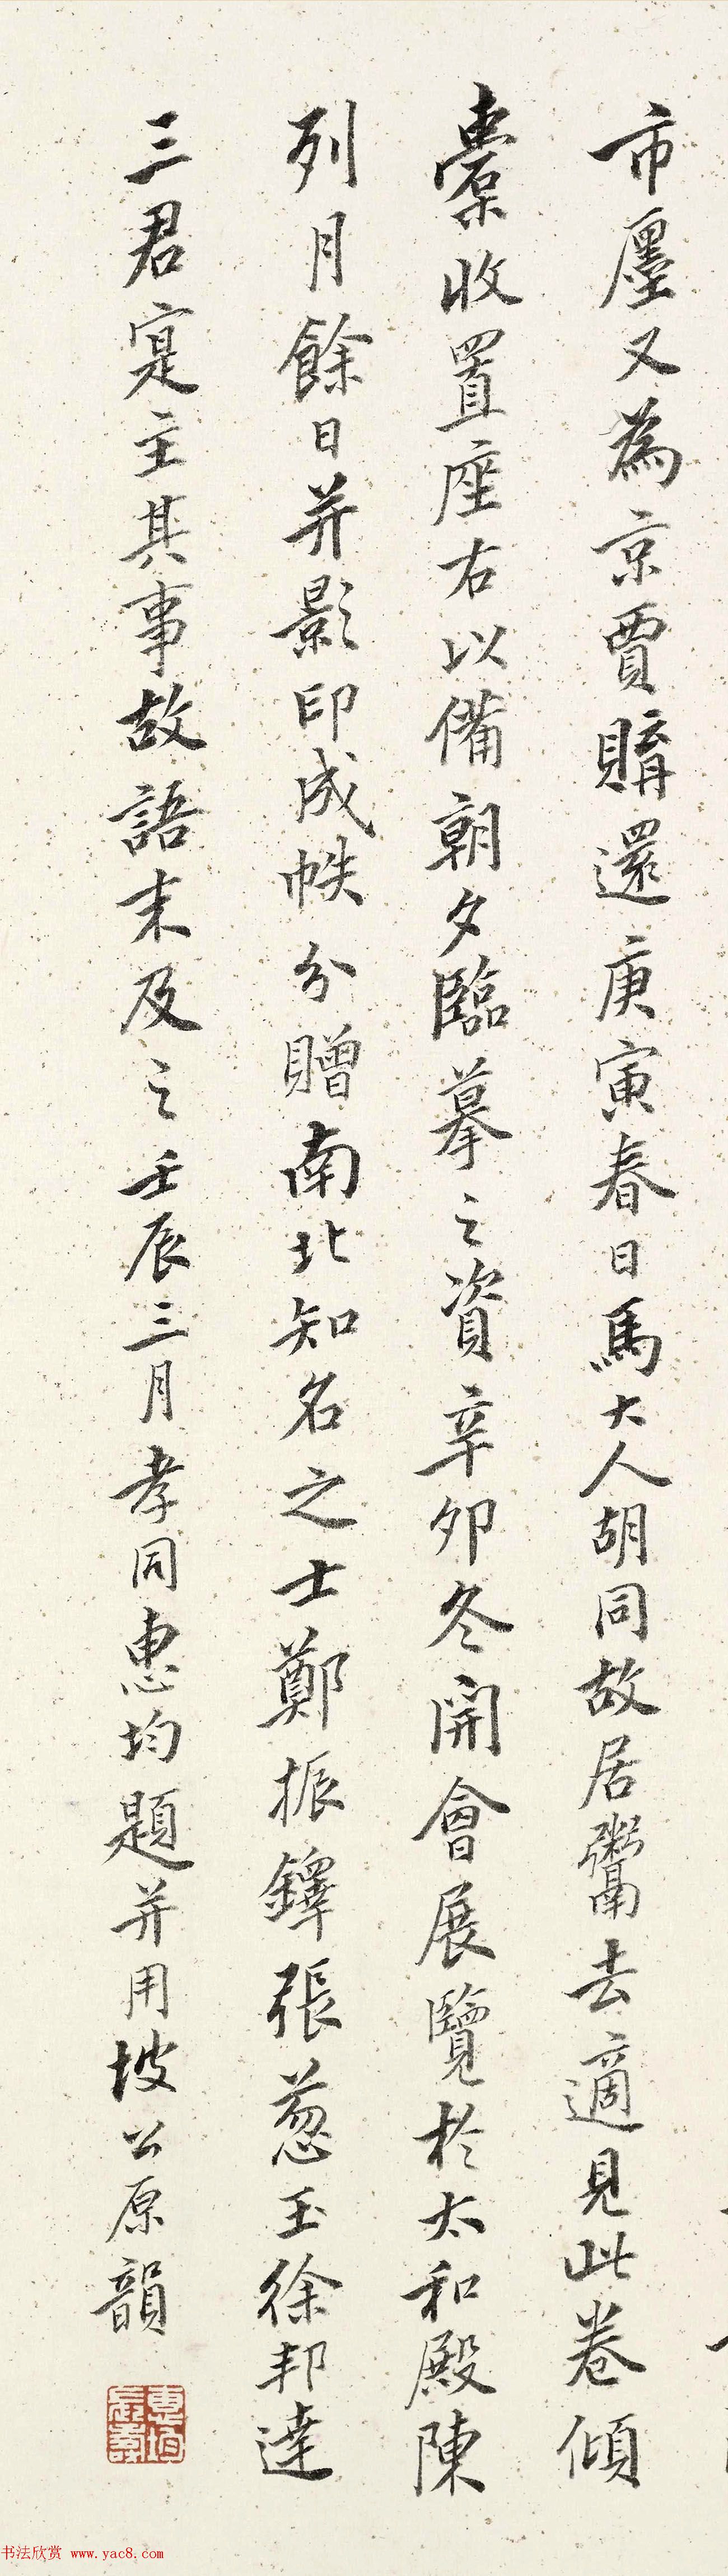 市廛又為京賈購還庚寅春日馬大人胡同故居鬻去適見此卷傾
囊收置座右以備朝夕臨摹之資辛卯冬開會展覽於太和殿陳
列月餘日并影印成帙分贈南北知名之士鄭振鐸張蔥玉徐邦達
三君寔主其事故語末及之壬辰三月孝同惠均題并用坡公原韻
书法欣赏 www.yac8.com